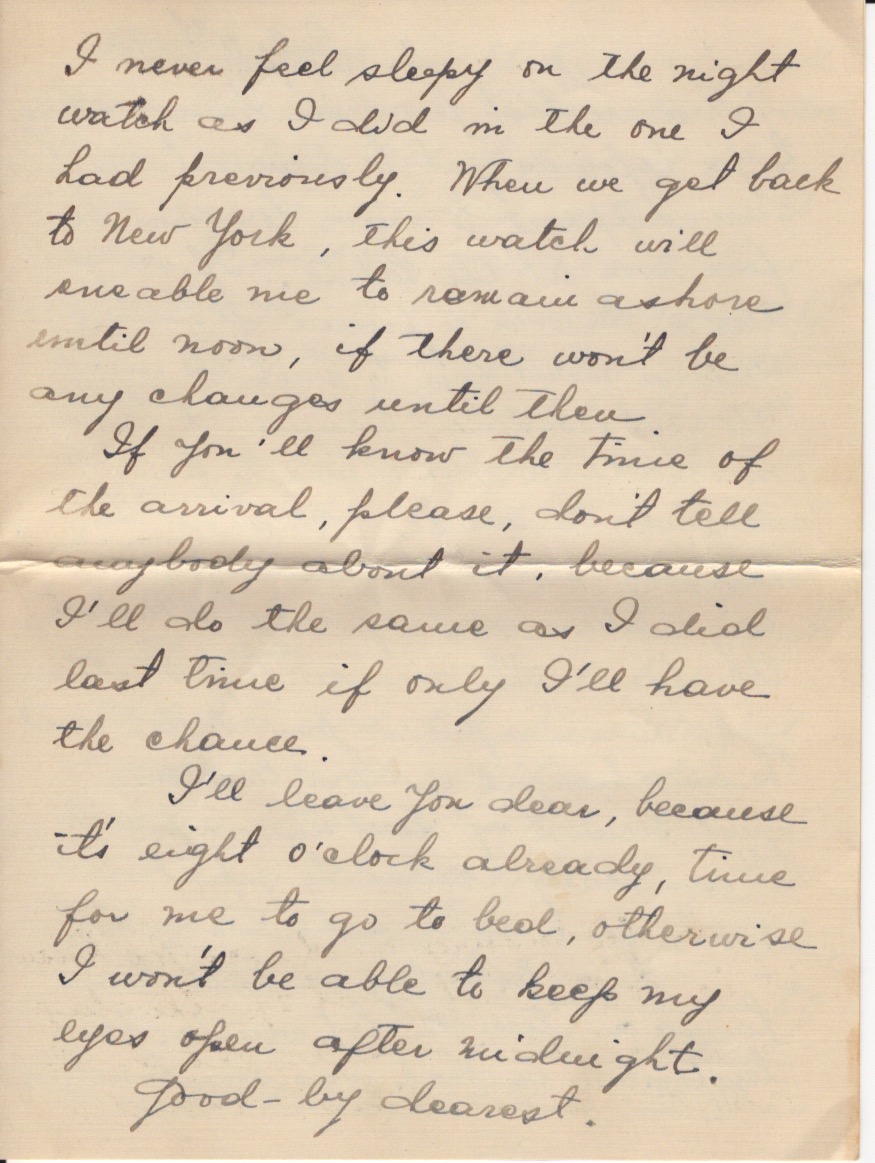 I never feel sleepy on the night
watch as I did in the one I
had previously. When we get back
to New York, this watch will
eneable me to remain ashore
until noon, if there won't be
any changes until then
If you'll know the time of
the arrival, please, don't tell
anybody about it, because
I'll do the same as I did
last time if only I'll have
the chance.
I'll leave you dear, because
it's eight o'clock already, time
for me to go to bed, otherwise
I won't be able to keep my
eyes open after midnight.
Good-by dearest.